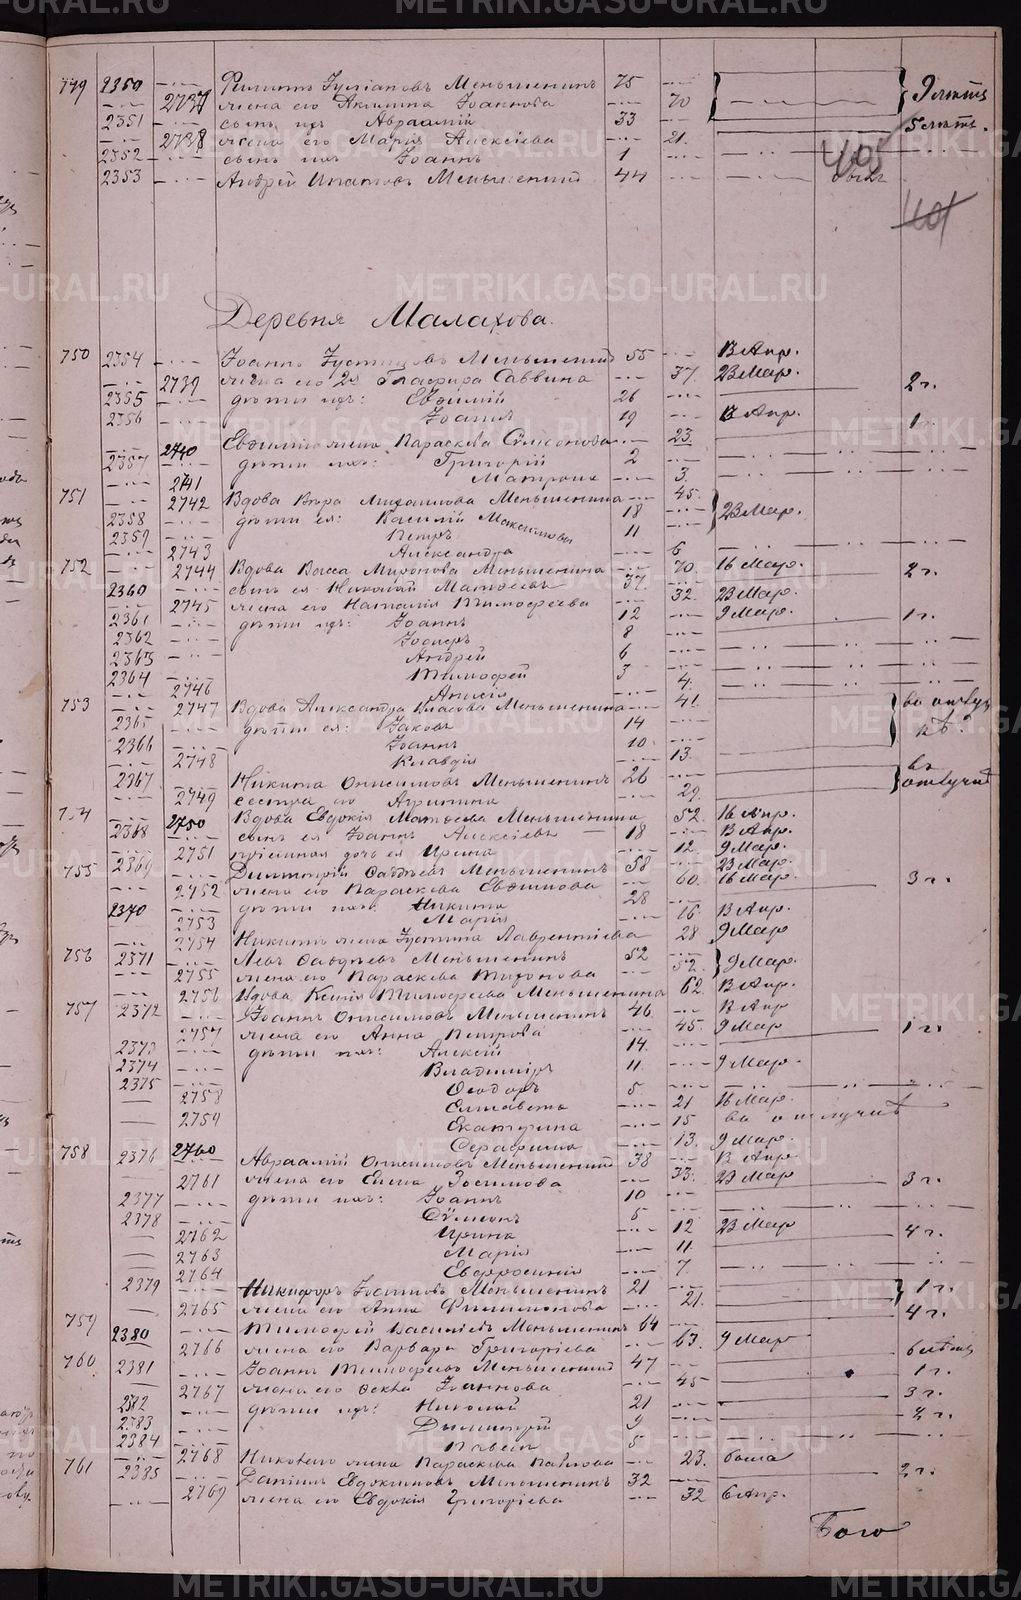 749 2350 Филиппъ Іуліановъ Меньшенинъ 75 9 лѣтъ
2737 жена его Акилина Іоаннова 70
2351 сынъ ихъ Авраамій 33 5 лѣтъ.
2738 жена его Марія Алексіева 21.
2352 сынъ ихъ Іоаннъ 1
2353 Андрей Ипатовъ Меньшенинъ 44
405
401
Деревня Малахова.
750 2354 Іоаннъ Меньшенинъ 55 13 Апр.
2739 жена его 2я Глафира Саввина 37. 23 Мар.
2355 дѣти ихъ: Евѳимій 26 2 г.
2356 Іоаннъ 19 13 Апр. 1
2740 Евѳимія жена Параскева Сѵмеонова 23.
2357 дѣти ихъ: Григорій 2
2741 Матрона 3.
751 2742 Вдова Вѣра Михаилова Меньшенина 45. 23 Мар.
2358 дѣти ея: Василій Максимовы 18
2359 Петръ 11
2743 Александра 6
752 2744 Вдова Васса Миронова Меньшенина 70. 16 Мар. 2 г.
2360 сынъ ея Николай Матѳеевъ 37. 23 Мар.
2745 жена его Наталія Тимоѳеева 32. 9 Мар.
2361 дѣти ихъ: Іоаннъ 12 1 г.
2362 Іосифъ 8
2363 Андрей 6
2364 Тимоѳей 3
2746 Анисія 4.
753 2747 Вдова Александра Власова Меньшенина 41. въ отлуч
2365 дѣти ея: Іаковъ 14
2366 Іоаннъ 10
2748 Клавдія 13.
2367 Никита Онисимовъ Меньшенинъ 26 въ отлучкѣ
2749 сестра его Агрипина 29.
754 2750 Вдова Евдокія Матѳеева Меньшенина 52. 16 Апр.
2368 сынъ ея Іоаннъ Алексіевъ 18 13 Апр.
2751 пріемная дочь ея Ирина 12 9 Мар.
755 2369 Димитрій Ѳаддѣевъ Меньшенинъ 58 23 Мар.
2752 жена его Параскева Евѳимова 60. 16 Мар. 3 г.
2370 дѣти ихъ: Никита 28
2753 Марія 16 13 Апр.
2754 Никиты жена Іустина Лаврентіева 28 9 Мар
756 2371 Левъ Ѳаддѣевъ Меньшенинъ 52 9 Мар.
2755 жена его Параскева Тихонова 52.
2756 Вдова Ксенія Тимоѳеева Меньшенина 62 13 Апр.
757 2372 Іоаннъ Онисимовъ Меньшенинъ 46 13 Апр
2757 жена его Анна Петрова 45. 9 Мар 1 г.
2373 дѣти ихъ: Алексій 14.
2374 Владиміръ 11 9 Мар.
2375 Ѳеодоръ 5
2758 Елисавета 21 16 Мар.
2759 Екатерина 15 въ отлучкѣ
2760 Серафима 13. 9 Мар.
758 2376 Авраамій Онисимовъ Меньшенинъ 38 13 Апр
2761 жена его Елена Зосимова 33. 23 Мар 3 г.
2377 дѣти ихъ: Іоаннъ 10
2378 Сѵмеонъ 5
2762 Ирина 12 23 Мар 4 г.
2763 Марія 11
2764 Евфросинія 7
2379 Никифоръ Меньшенинъ 21 1 г.
2765 жена его Анна Филимонова 21. 4 г.
759 2380 Тимоѳей Василіевъ Меньшенинъ 64
2766 жена его Варвара Григоріева 63. 9 Март
760 2381 Іоаннъ Тимоѳеевъ Меньшенинъ 47 1 г.
2767 жена его Ѳекла Іоаннова 45 3 г.
2382 дѣти ихъ: Николай 21
2383 Димитрій 9
2384 Павелъ 5
2768 Николая жена Параскева Павлова 23. была
761 2385 Даніилъ Евдокимовъ Меньшенинъ 32 2 г.
2769 жена его Евдокія Григоріева 32 6 Апр.
Того